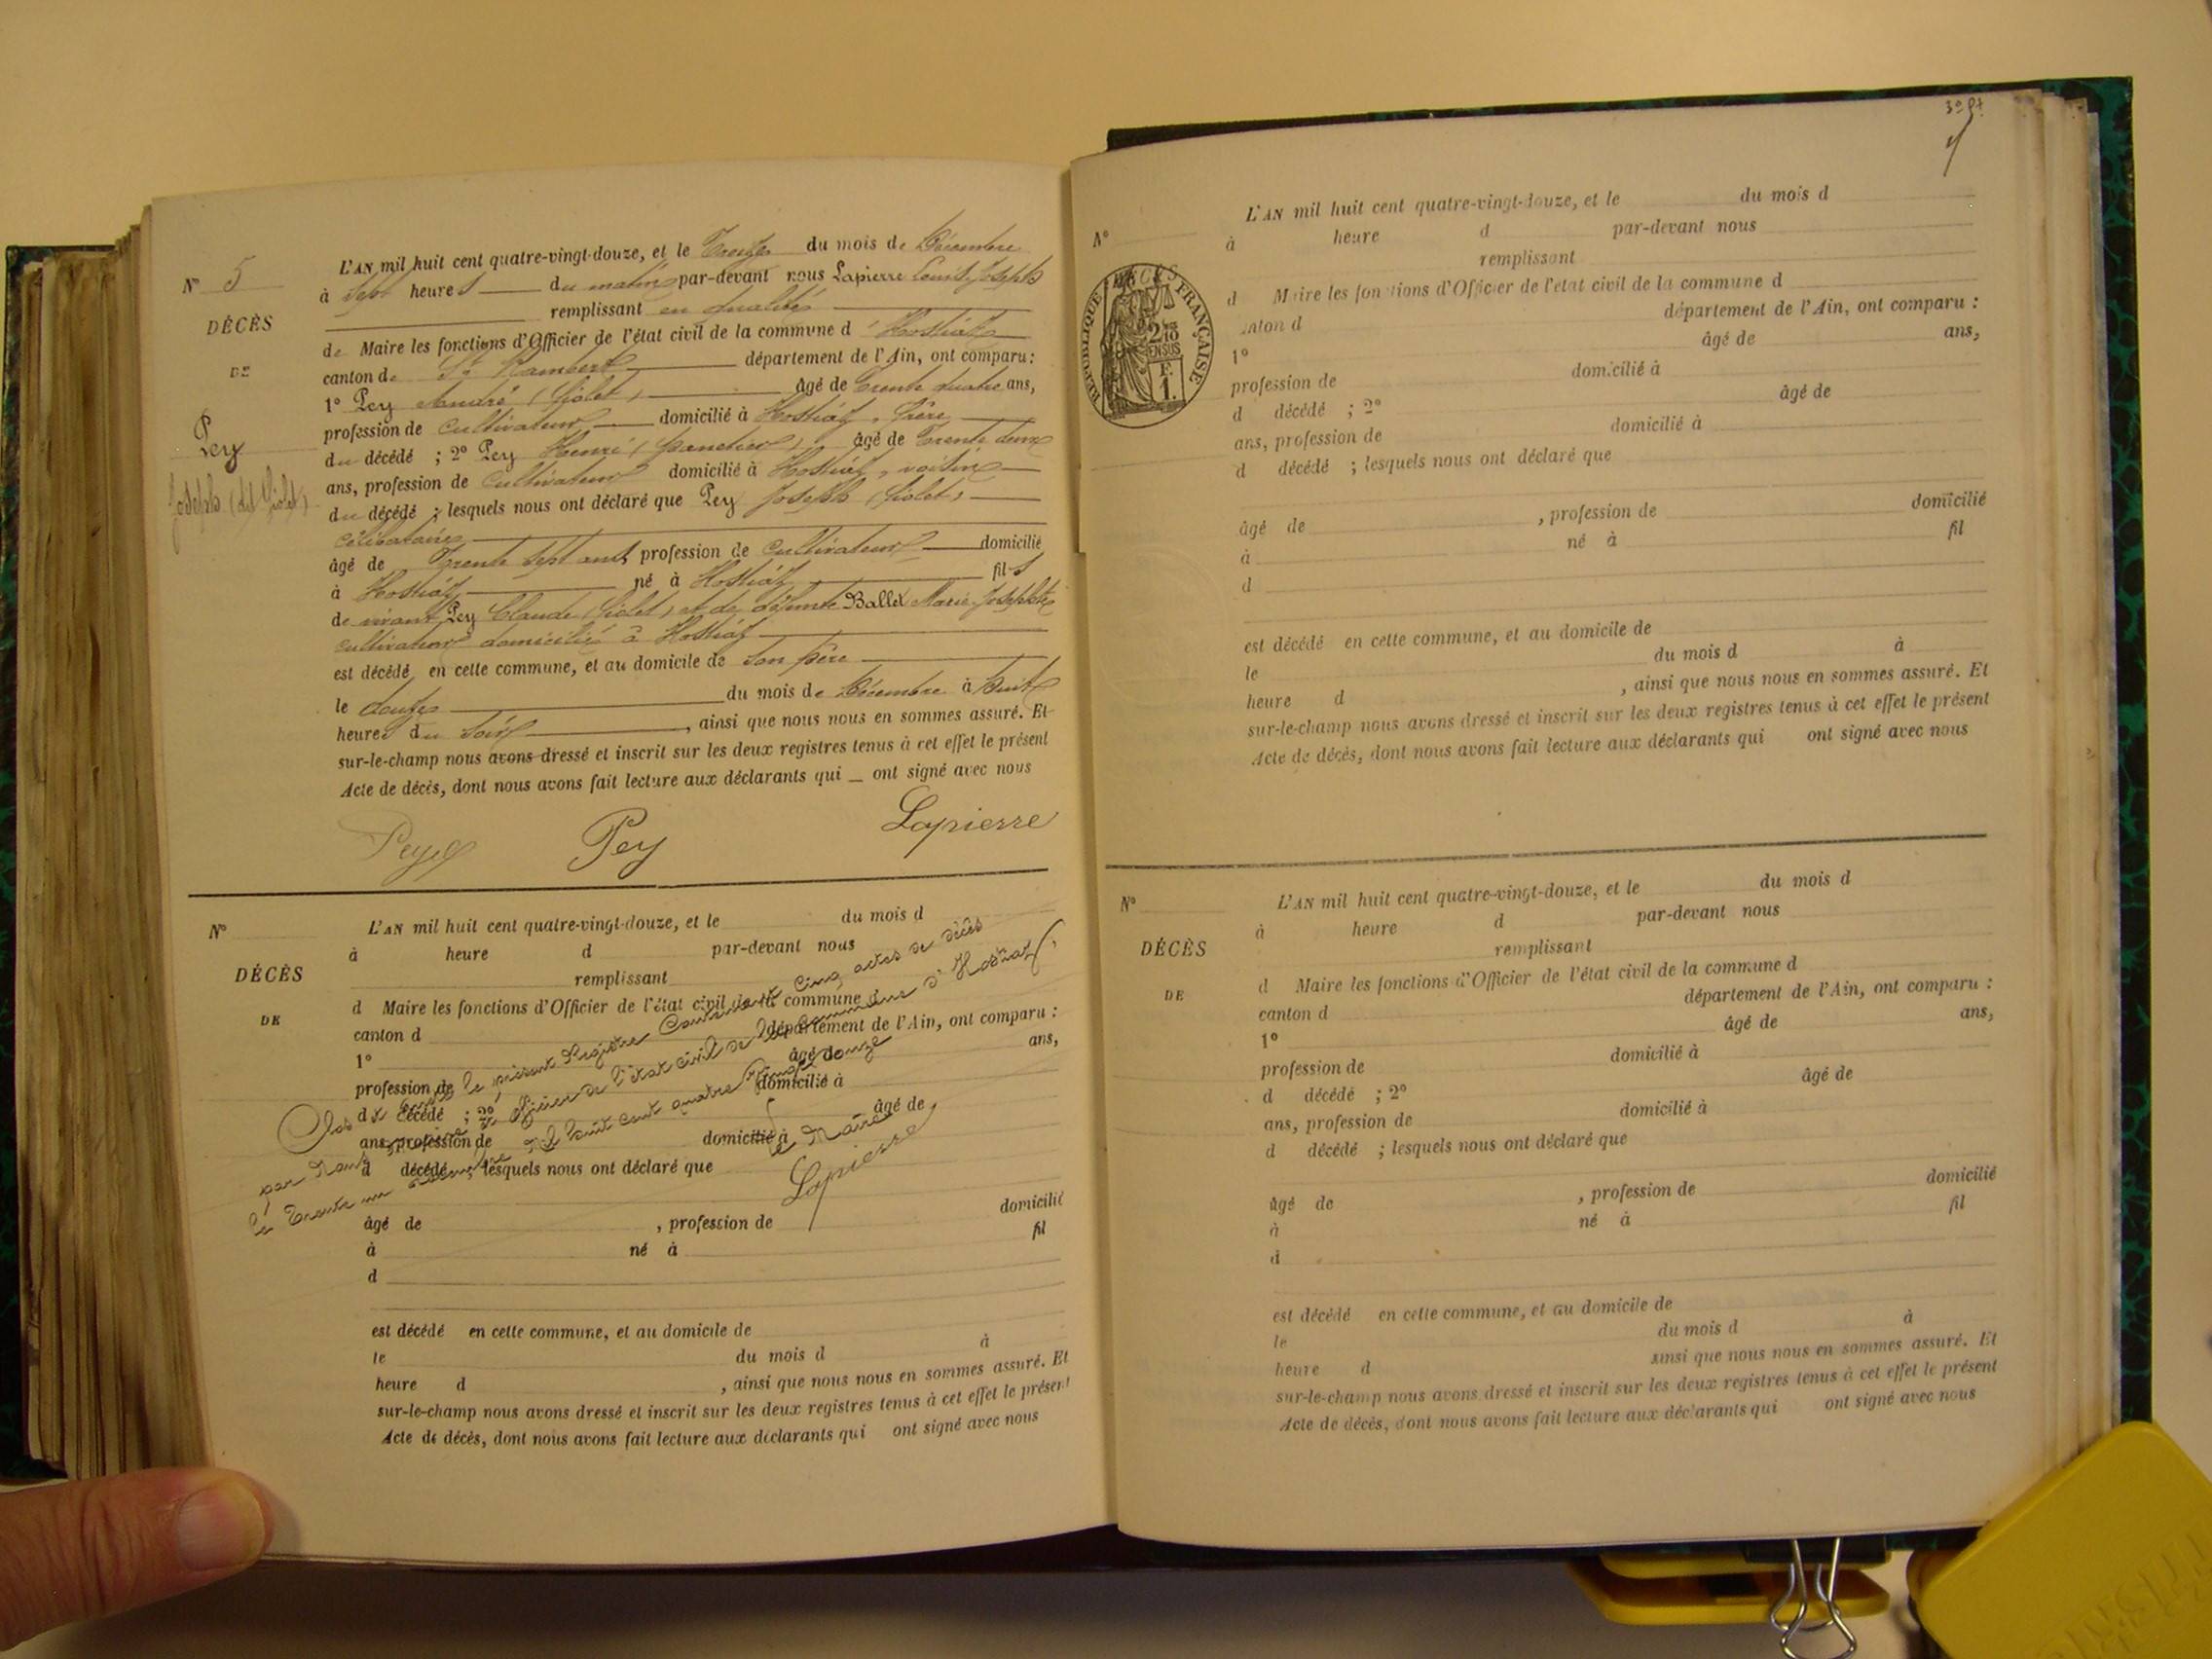 N° 5
DÉCÈS
DE
Pey
Joseph (dit Violet)
L'AN mil huit cent quatre-vingt-douze, et le Treize du mois de Décembre
à Sept heures du matin par-devant nous Lapierre Louis Joseph
remplissant en qualité
de Maire les fonctions d'Officier de l'état civil de la commune d'Hostiaz
canton de St Rambert département de l'Ain, ont comparu :
1° Pey André (Violet) âgé de Trente quatre ans,
profession de Cultivateur domicilié à Hostiaz, frère
du décédé ; 2° Pey Henri âgé de Trente deux
ans, profession de Cultivateur domicilié à Hostiaz, voisin
du décédé ; lesquels nous ont déclaré que Pey Joseph (Violet)
célibataire
âgé de Trente Sept ans, profession de Cultivateur domicilié
à Hostiaz né à Hostiaz fils
de vivant Pey Claude (Violet) et de défunte Ballet Marie Josephte
cultivateur domicilié à Hostiaz
est décédé en cette commune, et au domicile de son père
le douze du mois de Décembre à huit
heures du soir, ainsi que nous nous en sommes assuré. Et
sur-le-champ nous avons dressé et inscrit sur les deux registres tenus à cet effet le présent
Acte de décès, dont nous avons fait lecture aux déclarants qui _ ont signé avec nous
Pey Pey Lapierre
N°
DÉCÈS
DE
L'AN mil huit cent quatre-vingt-douze, et le du mois d
à heure d par-devant nous
remplissant
d Maire les fonctions d'Officier de l'état civil de la commune d
canton d département de l'Ain, ont comparu :
1° âgé de ans,
profession de domicilié à
d décédé ; 2° âgé de
ans, profession de domicilié à
d décédé ; lesquels nous ont déclaré que
âgé de , profession de domicilié
à né à fil
d
est décédé en cette commune, et au domicile de
le du mois d à
heure d , ainsi que nous nous en sommes assuré. Et
sur-le-champ nous avons dressé et inscrit sur les deux registres tenus à cet effet le présent
Acte de décès, dont nous avons fait lecture aux déclarants qui ont signé avec nous
Clos et le présent Registre Contenant Cinq actes de décès
par Nous officier de l'état civil de la Commune d'Hostiaz,
le Trente un Décembre Mil huit cent quatre vingt douze
Le Maire
Lapierre
N°
RÉPUBLIQUE FRANÇAISE
DÉCÈS
L'AN mil huit cent quatre-vingt-douze, et le du mois d
à heure d par-devant nous
remplissant
d Maire les fonctions d'Officier de l'état civil de la commune d
canton d département de l'Ain, ont comparu :
1° âgé de ans,
profession de domicilié à
d décédé ; 2° âgé de
ans, profession de domicilié à
d décédé ; lesquels nous ont déclaré que
âgé de , profession de domicilié
à né à fil
d
est décédé en cette commune, et au domicile de
le du mois d à
heure d , ainsi que nous nous en sommes assuré. Et
sur-le-champ nous avons dressé et inscrit sur les deux registres tenus à cet effet le présent
Acte de décès, dont nous avons fait lecture aux déclarants qui ont signé avec nous
N°
DÉCÈS
DE
L'AN mil huit cent quatre-vingt-douze, et le du mois d
à heure d par-devant nous
remplissant
d Maire les fonctions d'Officier de l'état civil de la commune d
canton d département de l'Ain, ont comparu :
1° âgé de ans,
profession de domicilié à
d décédé ; 2° âgé de
ans, profession de domicilié à
d décédé ; lesquels nous ont déclaré que
âgé de , profession de domicilié
à né à fil
d
est décédé en cette commune, et au domicile de
le du mois d à
heure d ainsi que nous nous en sommes assuré. Et
sur-le-champ nous avons dressé et inscrit sur les deux registres tenus à cet effet le présent
Acte de décès, dont nous avons fait lecture aux déclarants qui ont signé avec nous